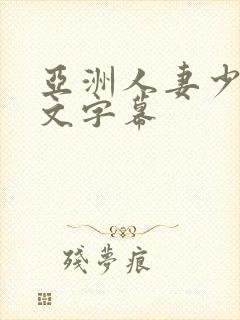 亞洲人妻少
文字幕
殘夢痕